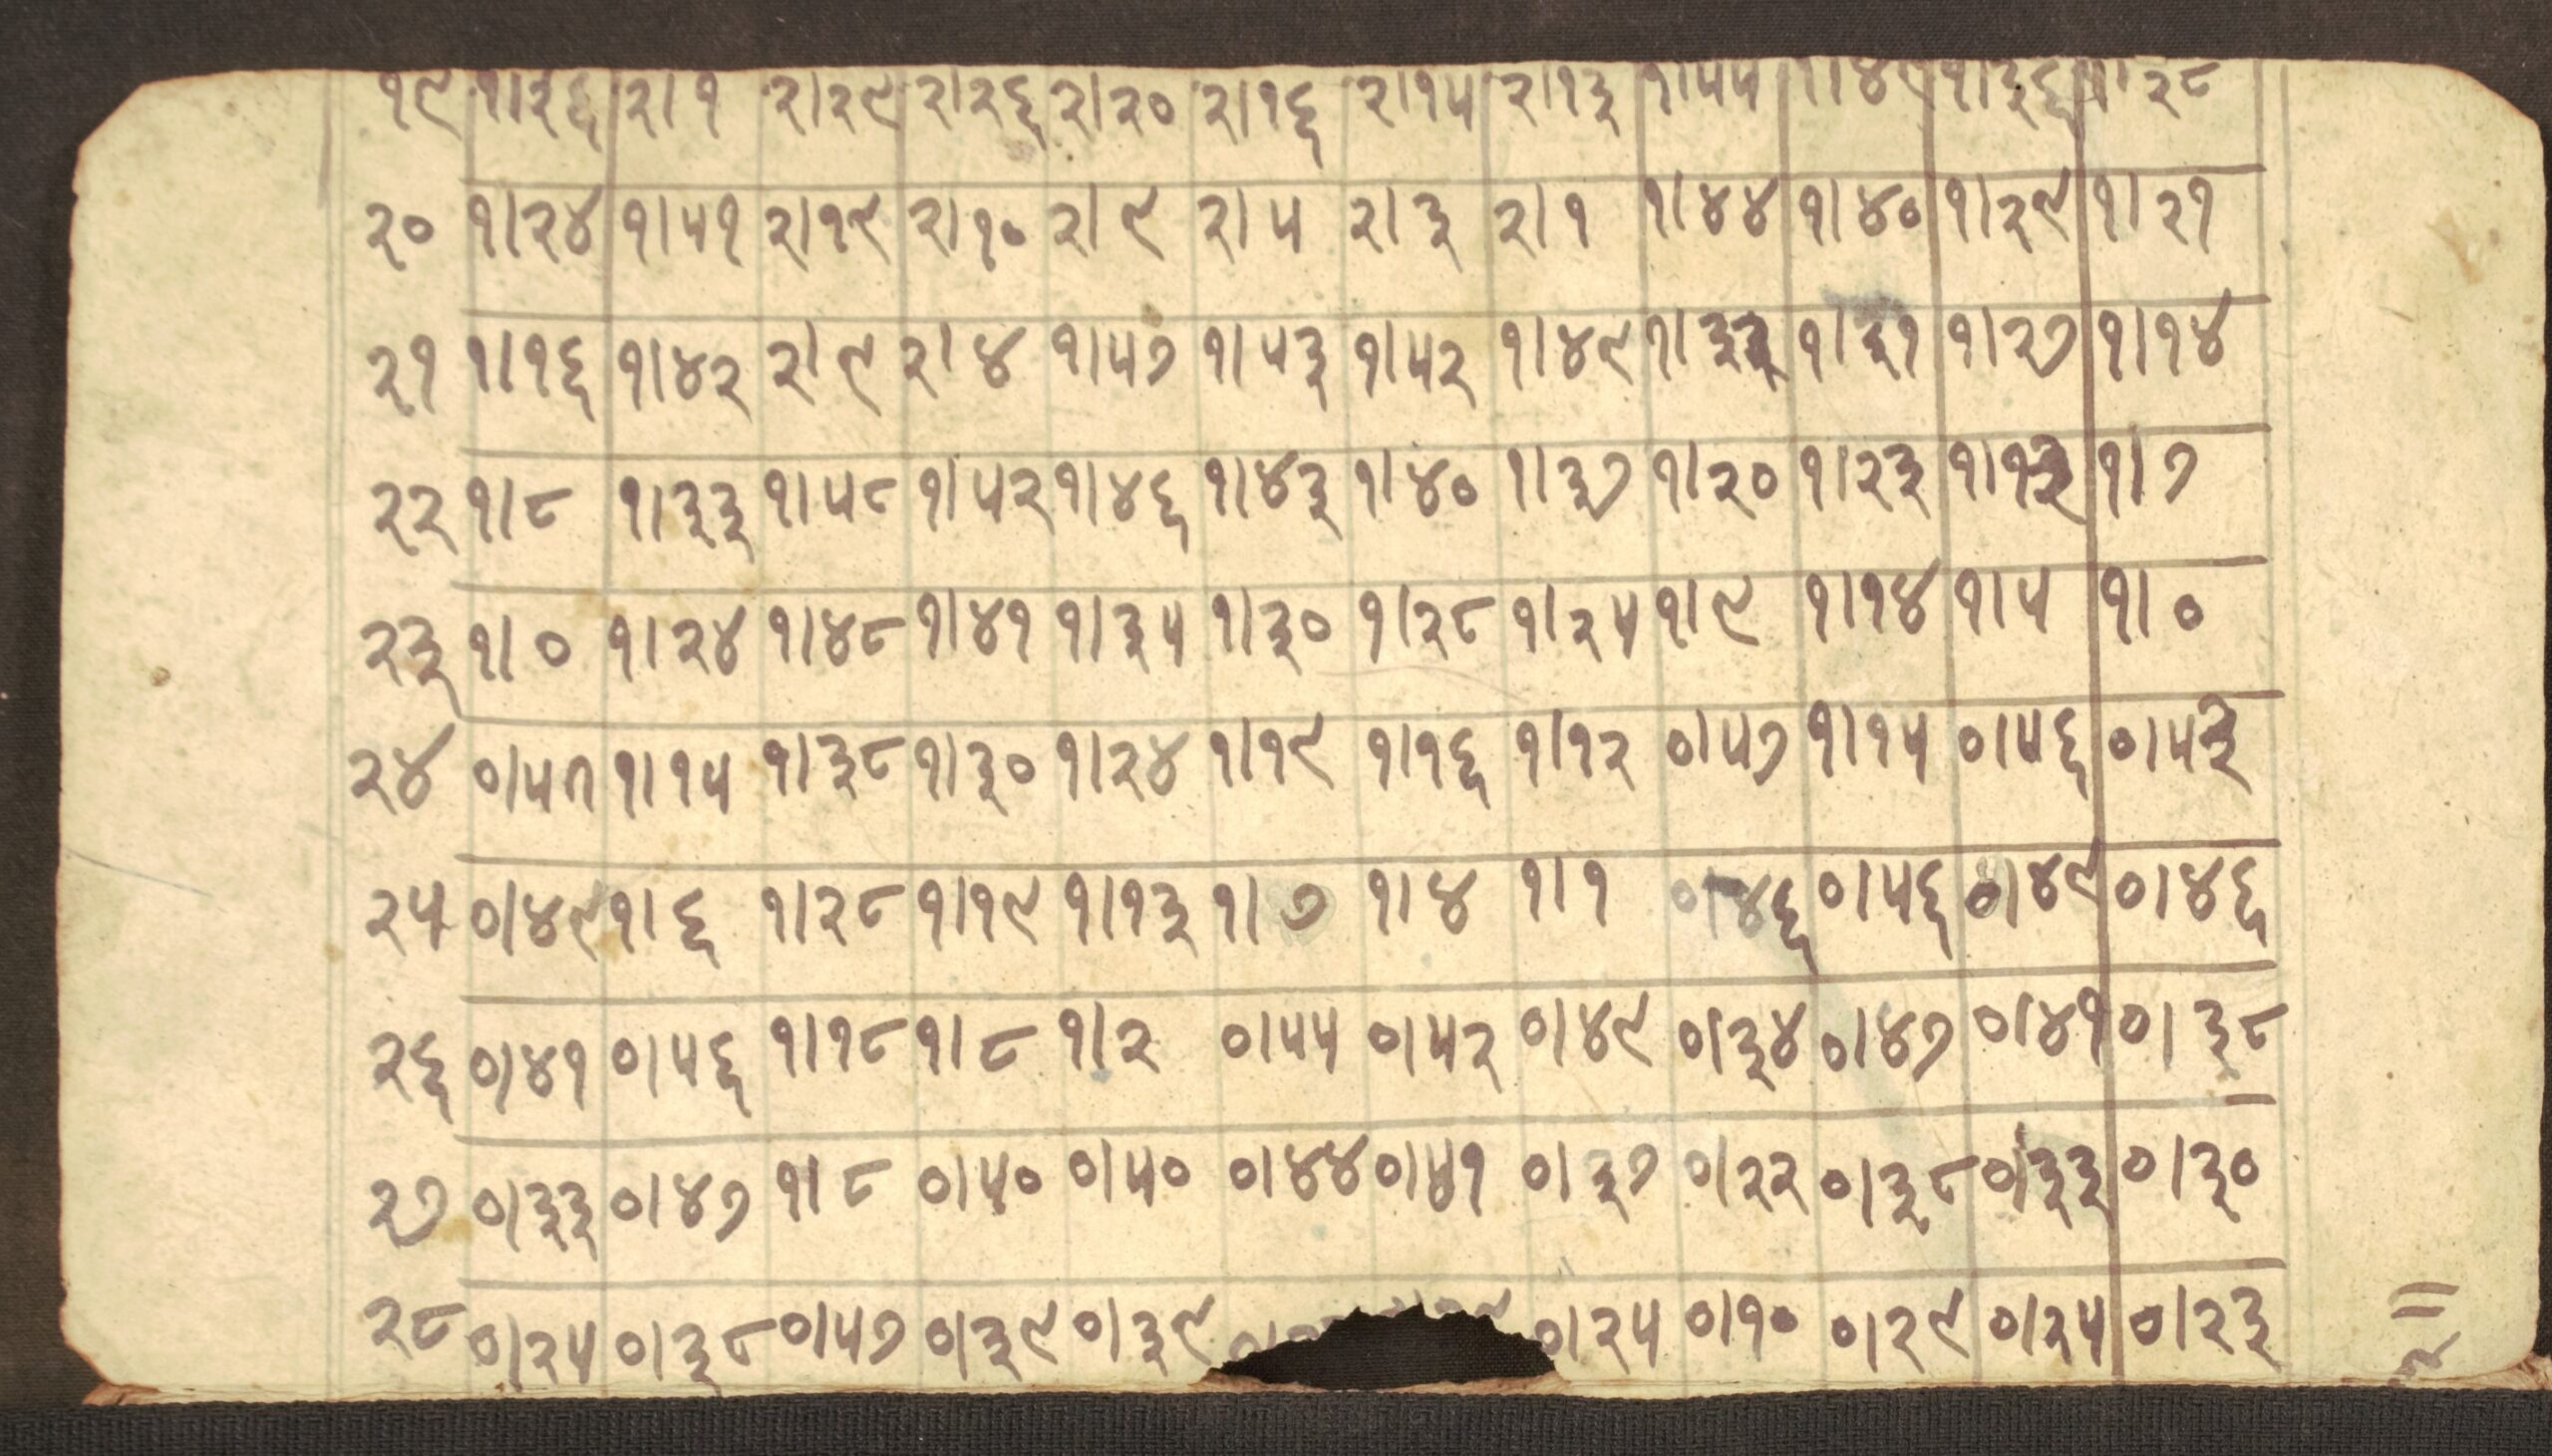 १९ १।३६ २।१ २।२९ २।२६ २।२० २।१६ २।१५ २।१३ १।५५ १।४९ १।३६ १।२८
२० १।२४ १।५१ २।१९ २।१० २।९ २।५ २।३ २।१ १।४४ १।४० १।२९ १।२१
२१ १।१६ १।४२ २।९ २।४ १।५७ १।५३ १।५२ १।४९ १।३२ १।३१ १।२७ १।१४
२२ १।८ १।३३ १।५८ १।५२ १।४६ १।४३ १।४० १।३७ १।२० १।२३ १।१३ १।७
२३ १।० १।२४ १।४८ १।४१ १।३५ १।३० १।२८ १।२५ १।९ १।१४ १।५ १।०
२४ १।१५ १।३८ १।३० १।२४ १।१९ १।१६ १।१२ ०।५७ १।१५ ०।५६ ०।५३
२५ ०।४९ १।६ १।२८ १।१९ १।१३ १।७ १।४ १।१ ०।४६ ०।५६ ०।४९ ०।४६
२६ ०।४१ ०।५६ १।१८ १।८ १।२ ०।५५ ०।५२ ०।४९ ०।३४ ०।४७ ०।४१ ०।३८
२७ ०।३३ ०।४७ १।८ ०।५० ०।५० ०।४४ ०।४१ ०।३७ ०।२२ ०।३८ ०।३३ ०।३०
२८ ०।२५ ०।३८ ०।५७ ०।३९ ०।३९ ०।२५ ०।१० ०।२९ ०।२५ ०।२३